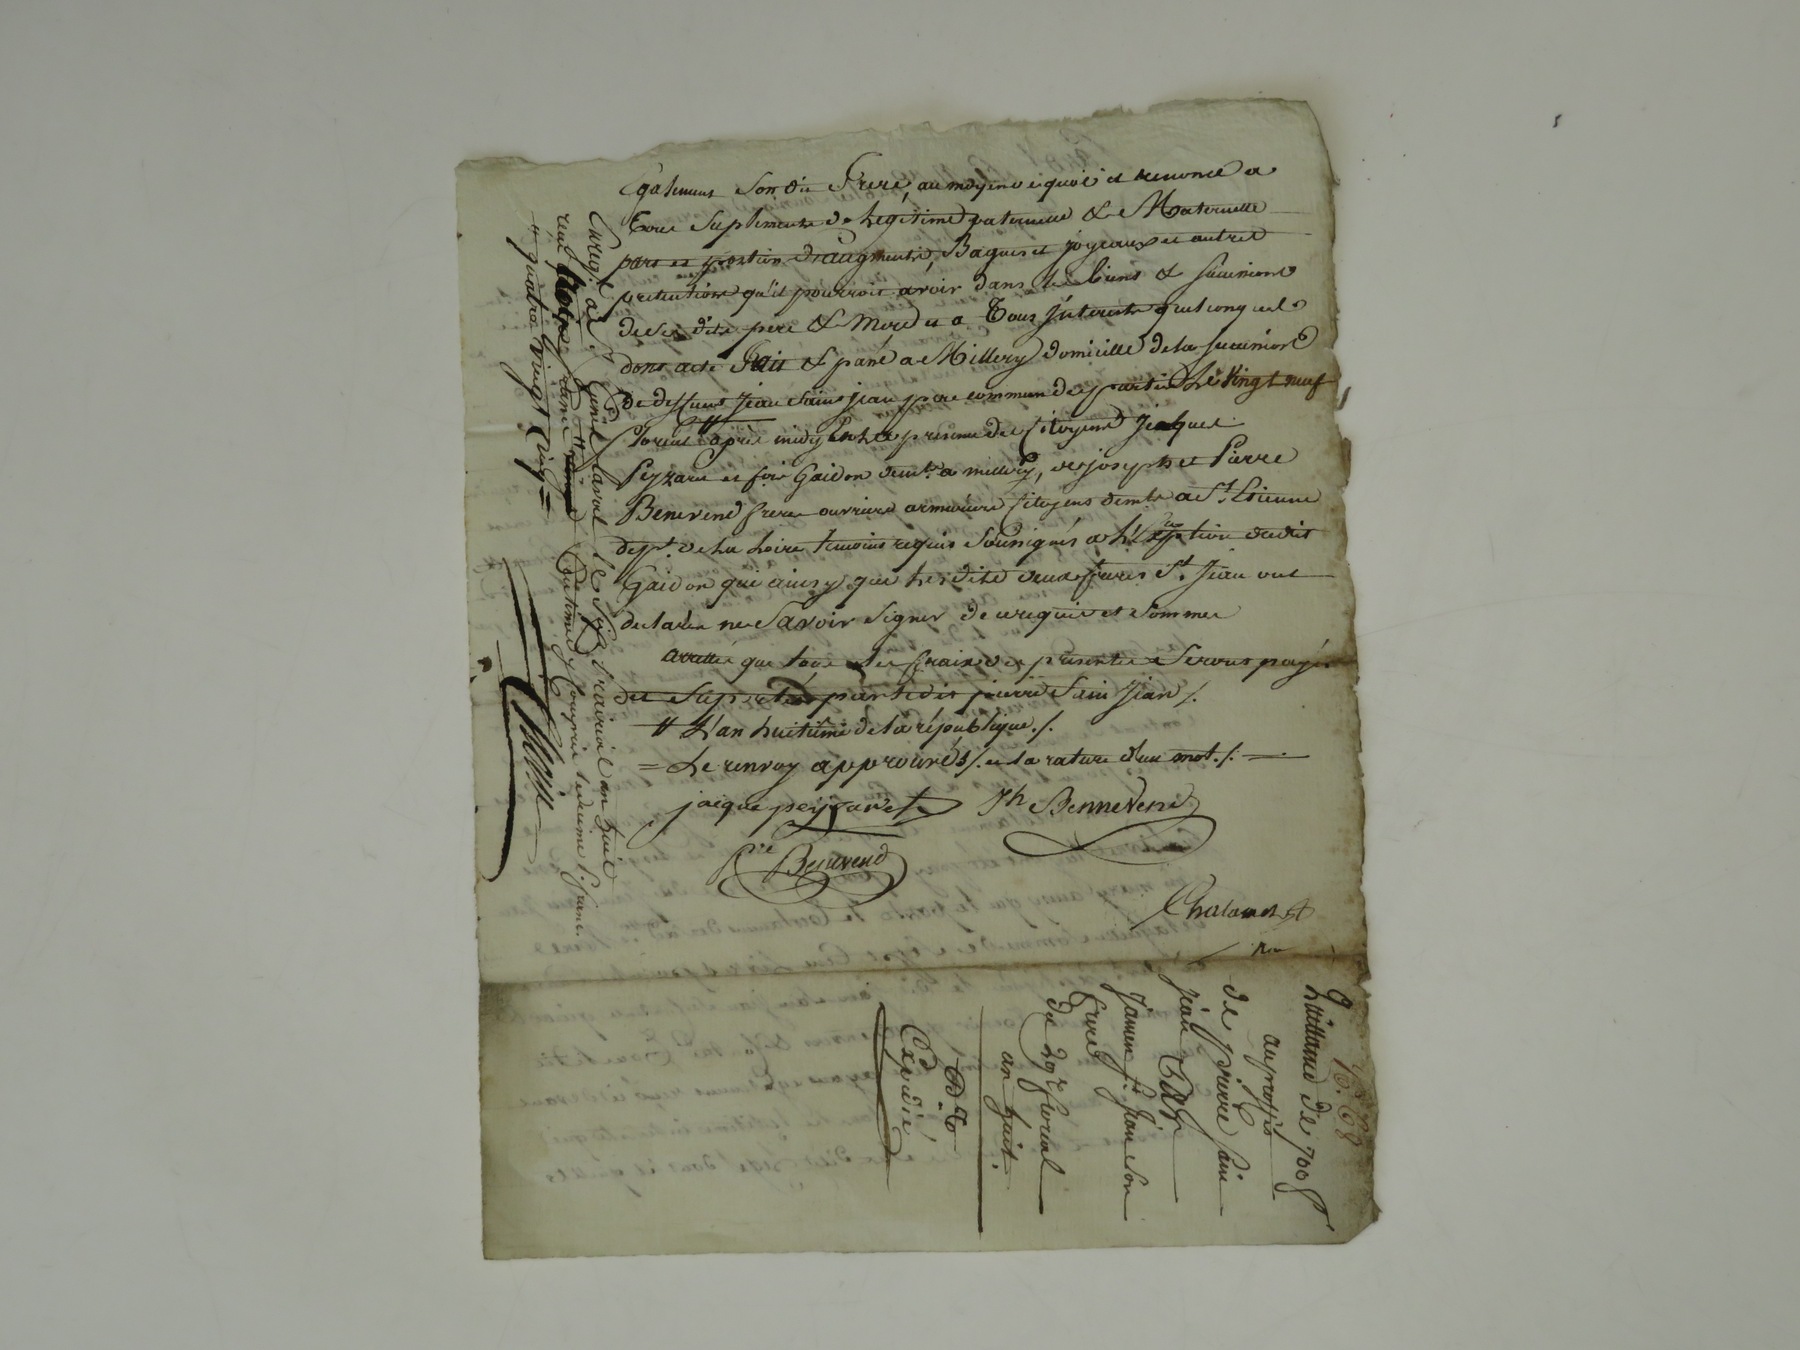 Egalement Son dit Frere, au moyen de quoi il renonce a
Tous Suplements de Legitime paternelle & Maternelle
part et portion d'augment, Bagues et joyeaux et autres
pretentions qu'il pourroit avoir dans les biens & succession
de ses dits pere & Mere et a Tous Interets quelconques
dont acte Fait & passé a Millery domicille de la succession
de deffunt Jean Saint jean pere commun des parties Le Vingt neuf
floreal après midy En la presence des Citoyens Jacques
Peyzaret et Gaidon demts. a millery, et joseph et Pierre
Benevend freres ouvriers armuriers Citoyens demts. a St. Etienne
dept. de La Loire temoins requis Soussignés a L'exception dudit
Gaidon qui ainsy que Lesdits deux freres St. Jean ont
declaré ne Savoir Signer de ce requis et Sommés
arretté que tous les fraix des presentes Seront payés
et Suportés par ledit pierre Saint Jean /.
# L'an huitieme de la république /.
= Le renvoy approuvés /. et la rature d'un mot /.
jacque peyzaret Jh Bennevend
Pre Benevend
Chalamel
No. 68
quittance de 700 ₶
au proffit
de pierre Saint
jean Et
James St. Jean Son
Frere
du 29e floreal
an huit.
Expédié
Enregé. a Le Six prairial an huit
reçu franc Centimes y Compris le dixieme p. franc
quatre vingt Cinq =